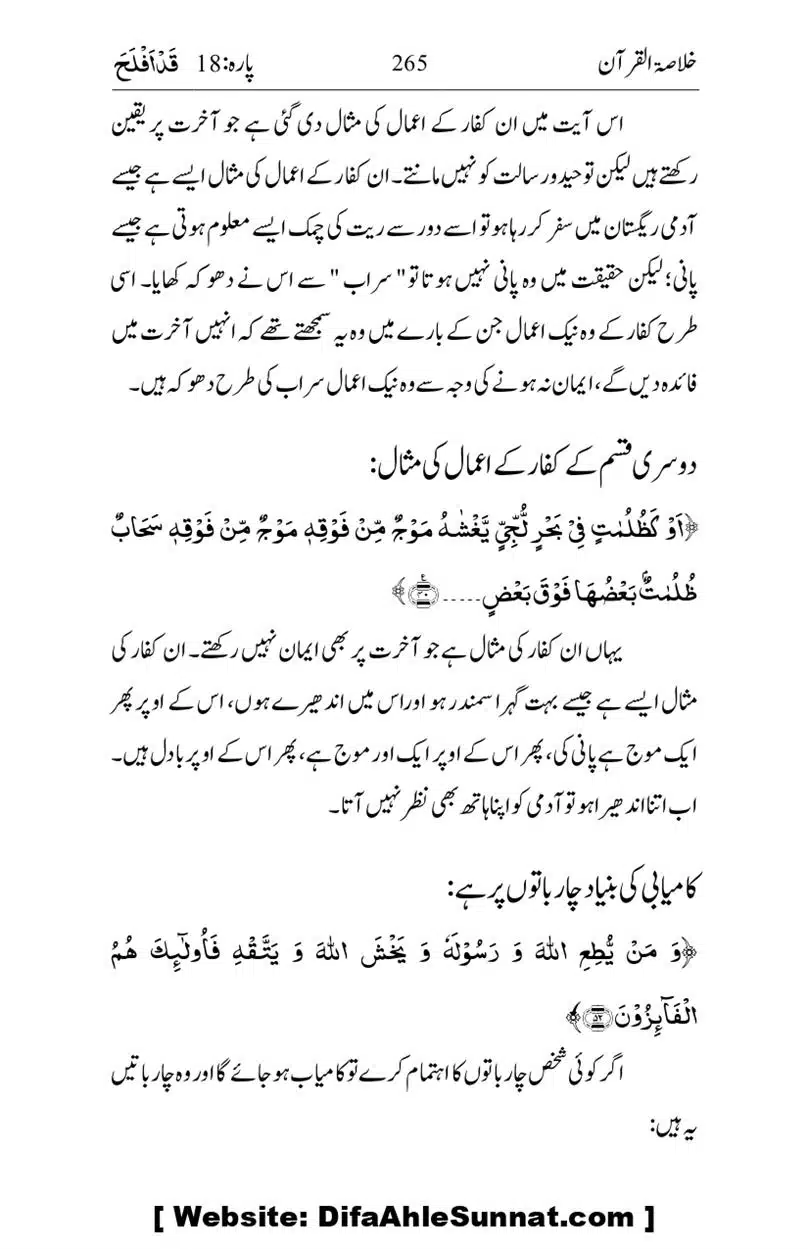 خلاصۃ القرآن 265 پارہ:18 قَدْ اَفْلَحَ
اس آیت میں ان کفار کے اعمال کی مثال دی گئی ہے جو آخرت پر یقین
رکھتے ہیں لیکن توحید ورسالت کو نہیں مانتے۔ ان کفار کے اعمال کی مثال ایسے ہے جیسے
آدمی ریگستان میں سفر کر رہا ہو تو اسے دور سے ریت کی چمک ایسے معلوم ہوتی ہے جیسے
پانی؛ لیکن حقیقت میں وہ پانی نہیں ہوتا تو "سراب" سے اس نے دھوکہ کھایا۔ اسی
طرح کفار کے وہ نیک اعمال جن کے بارے میں وہ یہ سمجھتے تھے کہ انہیں آخرت میں
فائدہ دیں گے، ایمان نہ ہونے کی وجہ سے وہ نیک اعمال سراب کی طرح دھوکہ ہیں۔
دوسری قسم کے کفار کے اعمال کی مثال:
﴿اَوْ كَظُلُمٰتٍ فِیْ بَحْرٍ لُّجِّیٍّ یَّغْشٰىهُ مَوْجٌ مِّنْ فَوْقِهٖ مَوْجٌ مِّنْ فَوْقِهٖ سَحَابٌ
ظُلُمٰتٌۢ بَعْضُهَا فَوْقَ بَعْضٍ.....﴿۴۰﴾﴾
یہاں ان کفار کی مثال ہے جو آخرت پر بھی ایمان نہیں رکھتے۔ ان کفار کی
مثال ایسے ہے جیسے بہت گہرا سمندر ہو اور اس میں اندھیرے ہوں، اس کے اوپر پھر
ایک موج ہے پانی کی، پھر اس کے اوپر ایک اور موج ہے، پھر اس کے اوپر بادل ہیں۔
اب اتنا اندھیرا ہو تو آدمی کو اپنا ہاتھ بھی نظر نہیں آتا۔
کامیابی کی بنیاد چار باتوں پر ہے:
﴿وَ مَنْ یُّطِعِ اللّٰهَ وَ رَسُوْلَهٗ وَ یَخْشَ اللّٰهَ وَ یَتَّقْهِ فَاُولٰٓىِٕكَ هُمُ
الْفَآىِٕزُوْنَ﴿۵۲﴾﴾
اگر کوئی شخص چار باتوں کا اہتمام کرے تو کامیاب ہو جائے گا اور وہ چار باتیں
یہ ہیں:
[ Website: DifaAhleSunnat.com ]